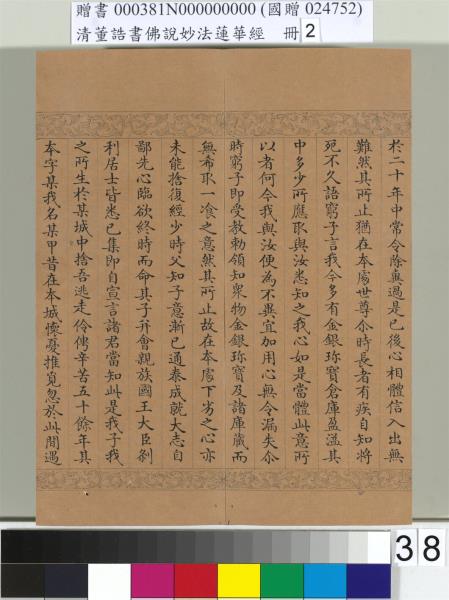 贈書 000381N000000000 (國贈 024752)
清董誥書佛說妙法蓮華經 冊 2
於二十年中常令除糞過是已後心相體信入出無
難然其所止猶在本處世尊尒時長者有疾自知將
死不久語窮子言我今多有金銀珍寶倉庫盈溢其
中多少所應取與汝悉知之我心如是當體此意所
以者何今我與汝便為不異宜加用心無令漏失尒
時窮子即受教勑領知衆物金銀珍寶及諸庫藏而
無希取一飡之意然其所止故在本處下劣之心亦
未能捨復經少時父知子意漸已通泰成就大志自
鄙先心臨欲終時而命其子并會親族國王大臣剎
利居士皆悉已集即自宣言諸君當知此是我子我
之所生於某城中捨吾逃走伶俜辛苦五十餘年其
本字某我名某甲昔在本城懷憂推覓忽於此間遇
38